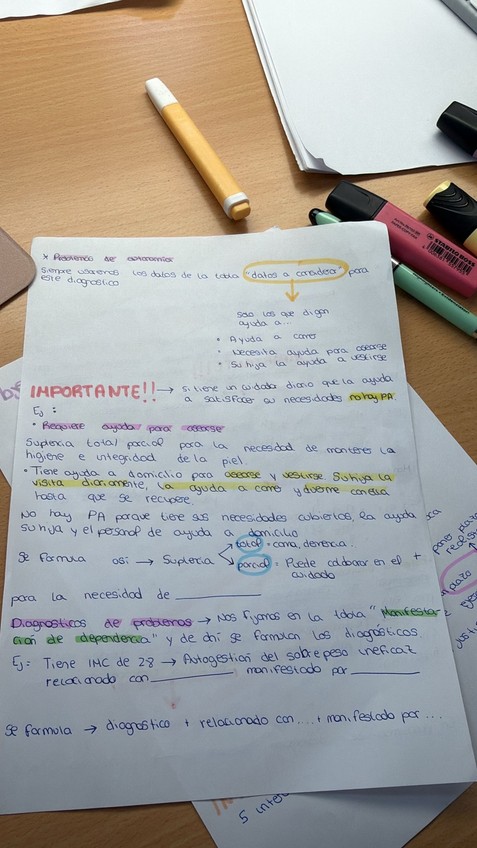 * Problema de autonomía
Siempre usaremos los datos de la tabla "datos a considerar" para
este diagnostico
Solo los que digan
ayuda a...
• Ayuda a comer
• Necesita ayuda para asearse
• Su hija la ayuda a vestirse
IMPORTANTE!! → si tiene un cuidador diario que la ayuda
a satisfacer su necesidades no hay PA.
Ej :
• Requiere ayuda para asearse
Suplencia total/parcial para la necesidad de mantener la
higiene e integridad de la piel.
• Tiene ayuda a domicilio para asearse y vestirse. Su hija la
visita diariamente, la ayuda a comer y duerme con ella
hasta que se recupere.
No hay PA porque tiene sus necesidades cubiertas, la ayuda
su hija y el personal de ayuda a domicilio
total = coma, demencia...
Se formula así → Suplencia
parcial = Puede colaborar en el +
cuidado
para la necesidad de
Diagnosticos de problemas → Nos fijamos en la tabla "Manifestac
ión de dependencia" y de ahí se formulan los diagnósticos.
Ej: Tiene IMC de 28 → Autogestión del sobrepeso ineficaz
relacionado con manifestado por
Se formula → diagnostico + relacionado con .... + manifestado por ...
STABILO BOSS
5 inter